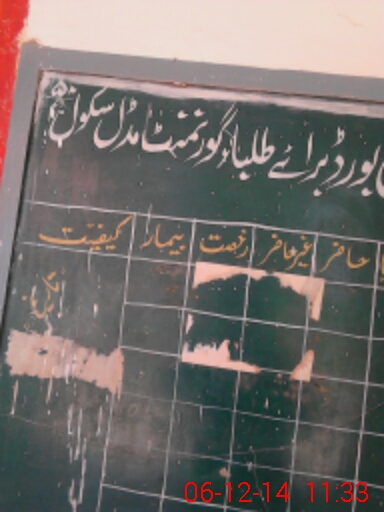 بورڈ برائے طلباء گورنمنٹ مڈل سکول
حاضر غیر حاضر رخصت بیمار کیفیت
06-12-14 11:33